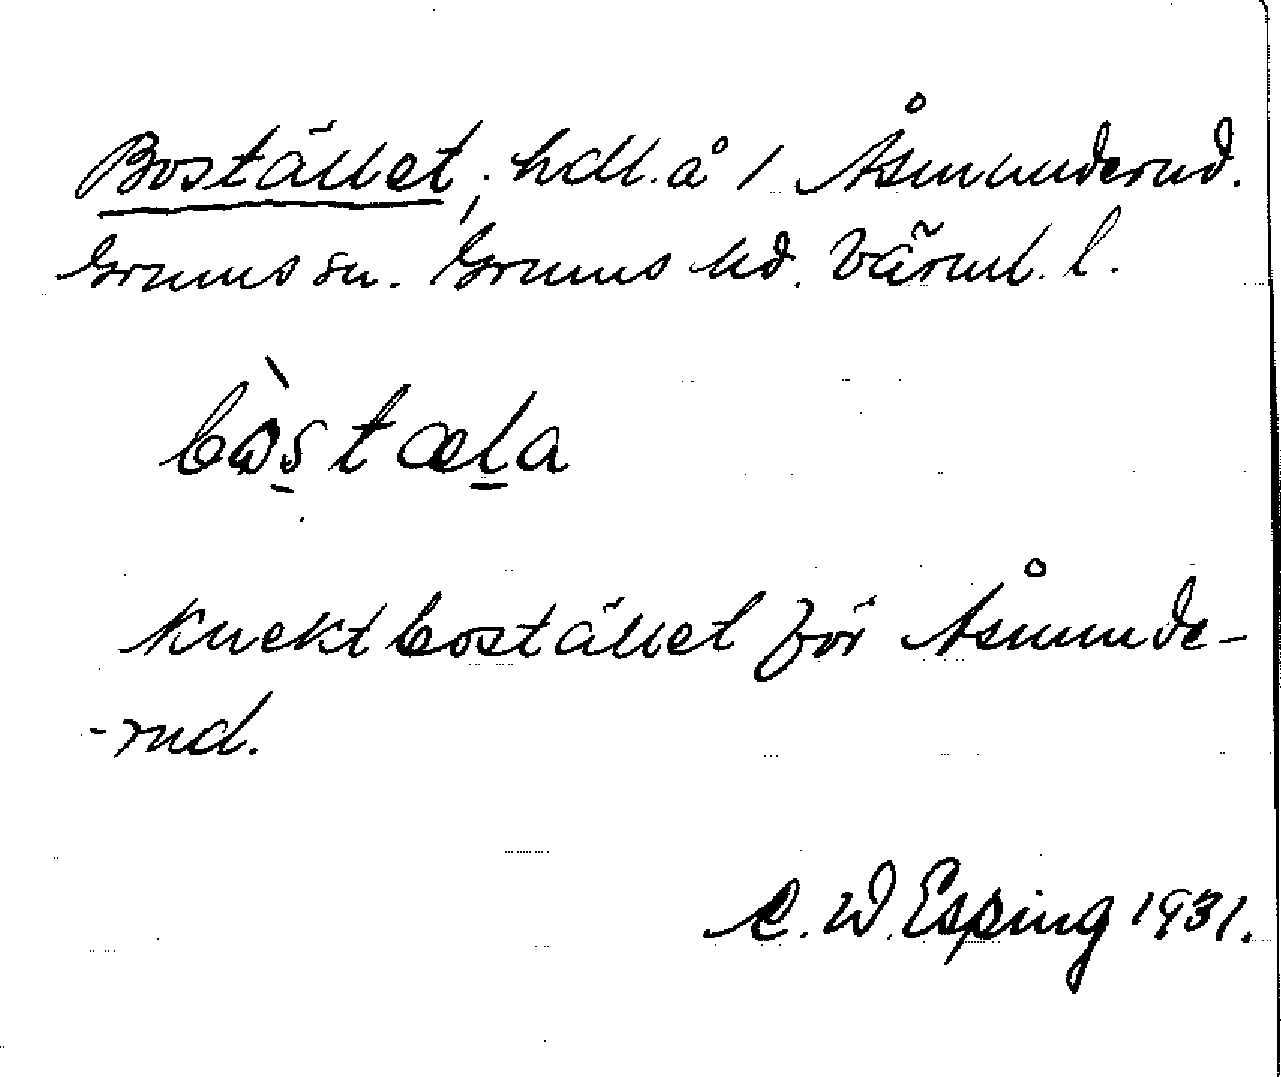 Bostället, hdl. å 1 Åsmunderud.
Grums sn. Grums hd. Värml. l.
bòstæla
Knektbostället för Åsmunde-
-rud.
C. W. Esping 1931.